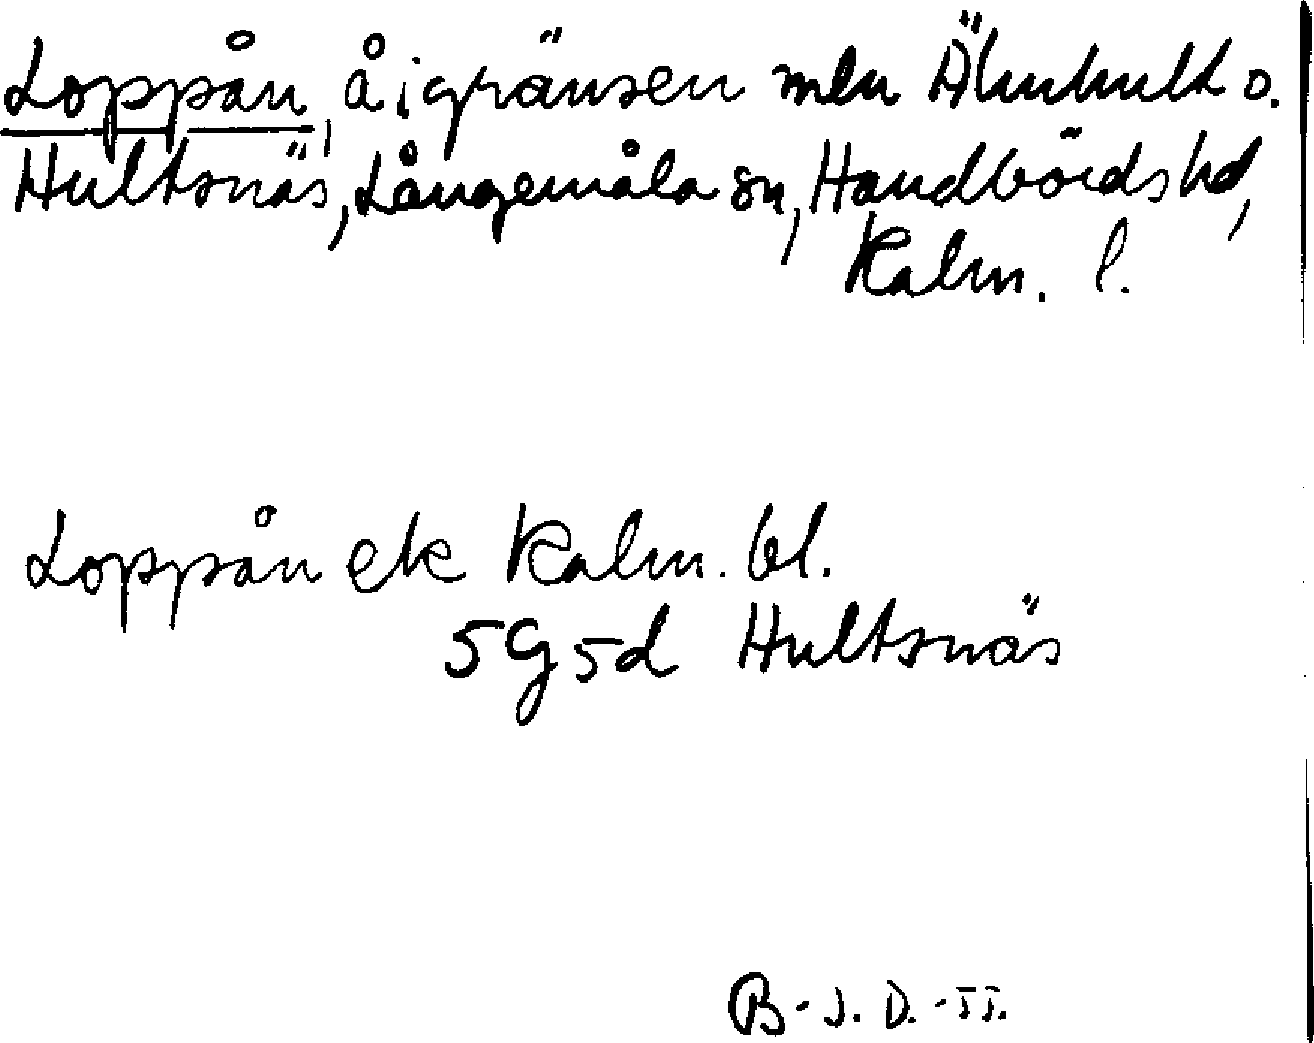 Loppån, å i gränsen mln Älmhult o.
Hultsnäs, Långemåla sn, Handbörds hd,
Kalm. l.
Loppån ek Kalm. bl.
5G5d Hultsnäs
B-J. D. -55.